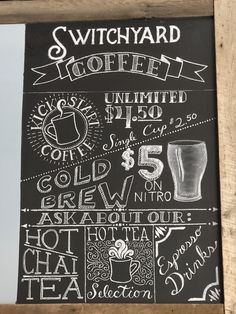 SWITCHYARD
COFFEE
KICK STREET
COFFEE
UNLIMITED
$4.50
Single Cup $2.50
COLD
BREW
$5
ON
NITRO
ASK ABOUT OUR:
HOT
CHAI
TEA
HOT TEA
Selection
Espresso
Drinks